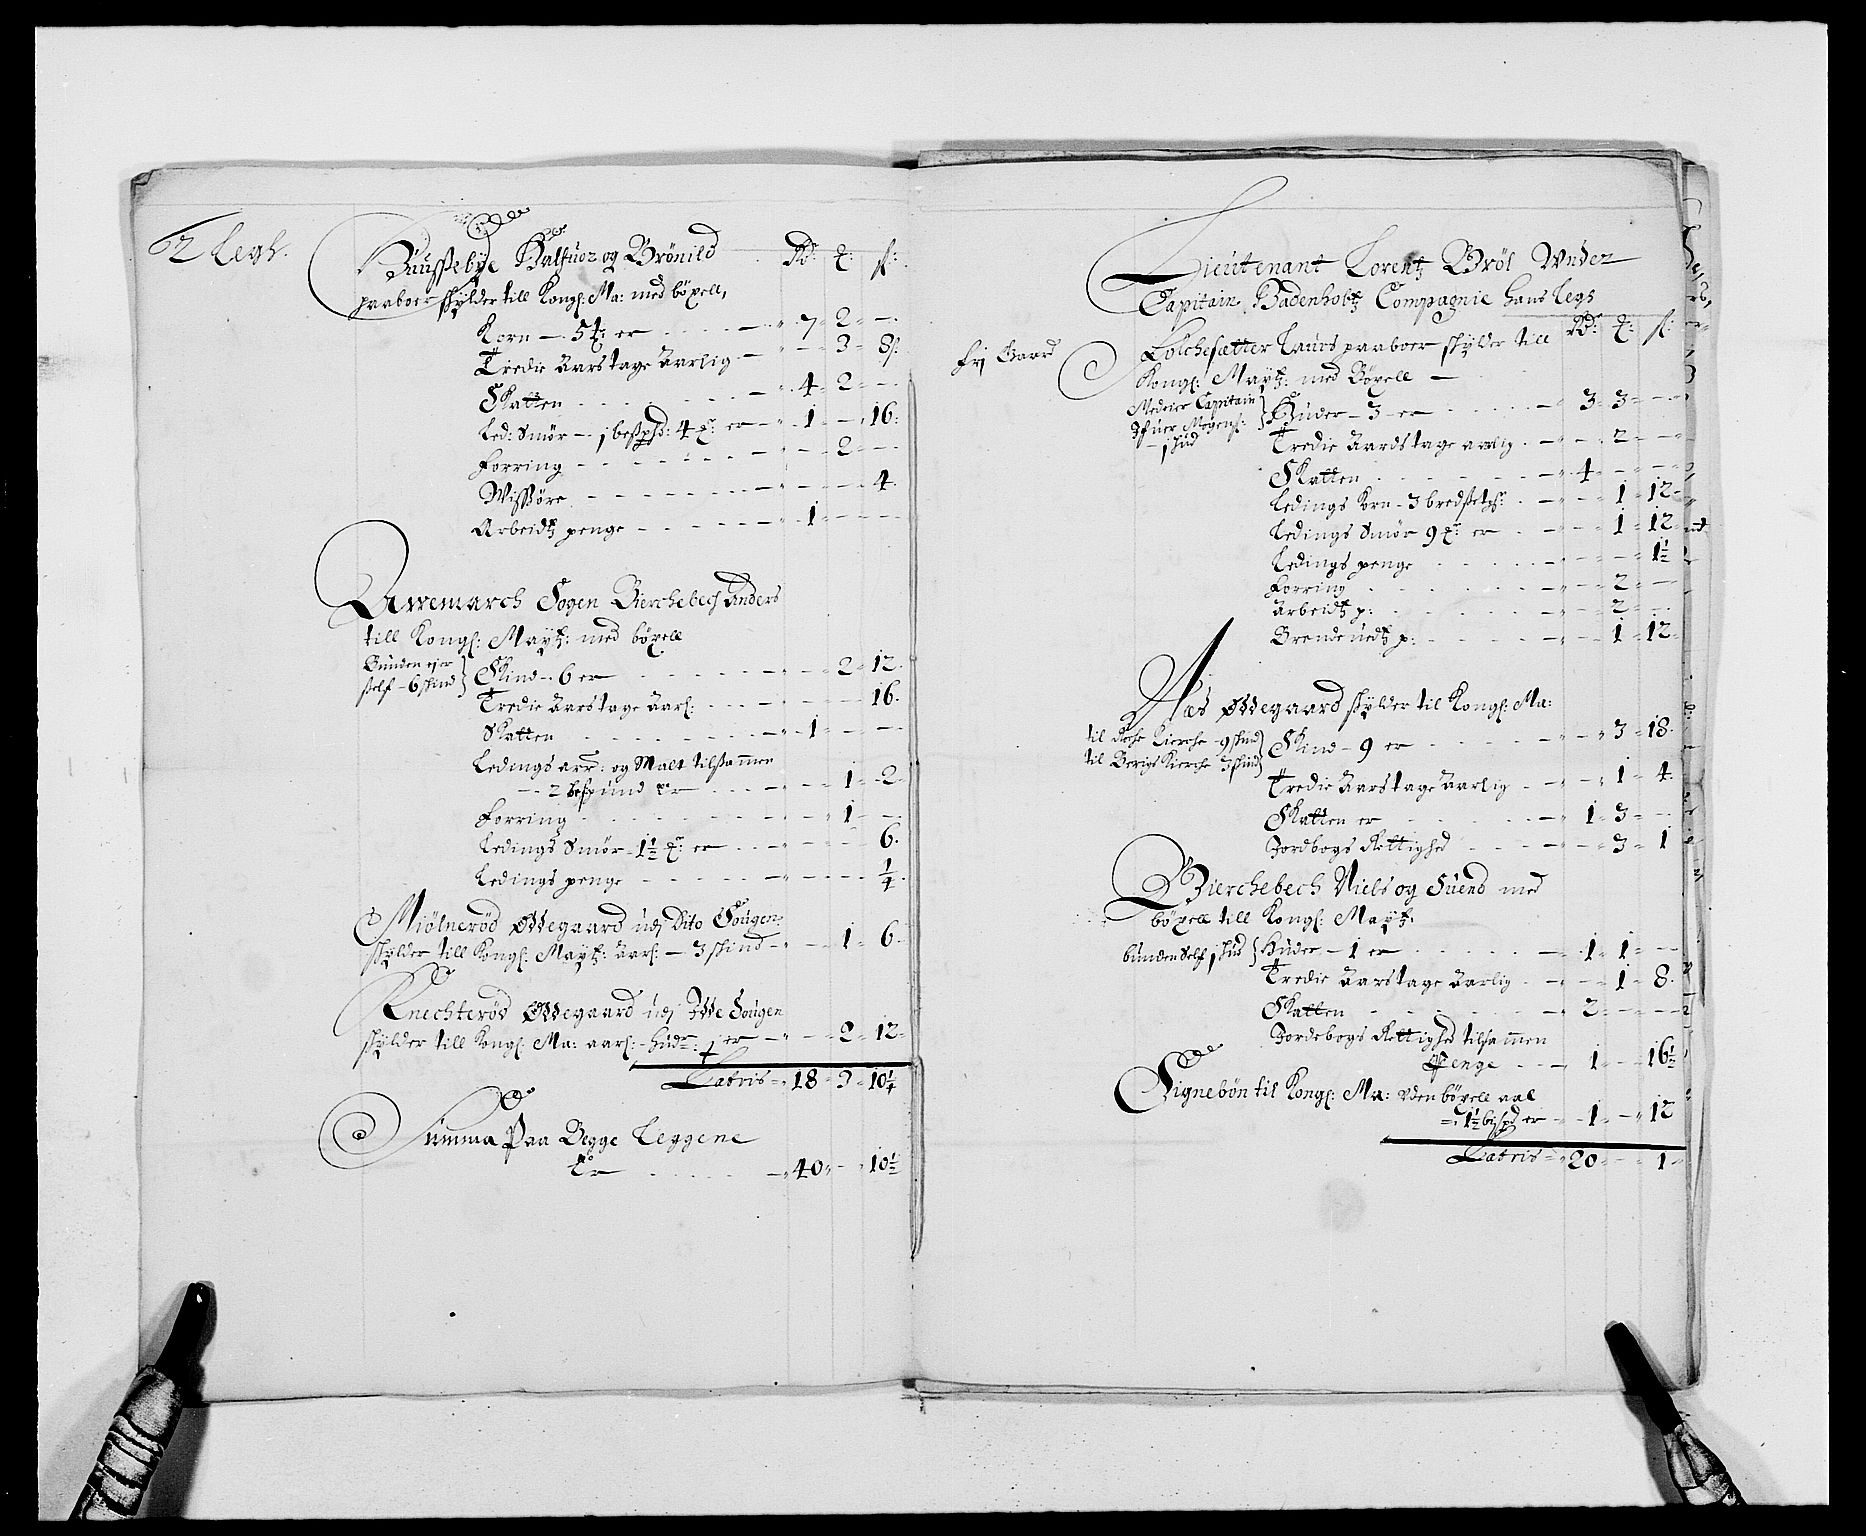 2 Legh.
Huussebye Halfuor og Brönild Rd: ℔: ſſ:
paaboer schylder till Kongl: Ma: med böxell,
Korn — 5 ℔ er 7 2 —
Tredie Aarstage Aarlig — 3 8 ſſ
Skatten 4 2 —
Led: Smör — j bespsd: 4 ℔: er 1 — 16
Forring — 2 —
Wissöre — — 4
Arbeidtz penge 1 — —
Aremarch Sogen Bierchebech Anders
till Kongl: Maytz: med böxell
Bunden ejer
self – 6 schind
Skind – 6 er — 2 12
Tredie Aarstage Aarl: — — 16
Skatten 1 — —
Ledings arr: og Malt tilsammen
— 2 bespund er — 1 2
Forring — 1 —
Ledings Smör – 1½ ℔: er — — 6
Ledings penge — — ¼
Miölneröd Ödegaard udj Dito Sougen
schylder till Kongl: Maytz: Aarl: — 3 schind — 1 6
Knechteröd Ödegaard udj Sougen
schylder till Kongl: Ma: aarl: – hud: j er — 2 12
Latris 18 3 10¼
Summa Paa Begge Leggene
Er 40 — 10½
Lieutenant Lorentz Bröl Under
Capitain Badenholtz Compagnie hans Legs
Rd: ℔: ſſ:
frj Gaard
Kolchesætter Laurs paaboer schylder till
Kongl: Maytz: med Böxell —
Medeier Capitain
Ifuer Mogens:
— j hud
Huder – 3 – er 3 3 —
Tredie Aardstage aarlig — 2 —
Skatten 4 — —
Ledings Korn – 3 — 1 12
Ledings Smör 9 ℔: er — 1 12
Ledings penge — — 1½
Forring — 2 —
Arbeidtz p: — 2 —
Grendeuedtz p: — 1 12
Næs Ödegaard schylder til Kongl: Ma:
til Kierche – 9 schind
til Bergs Kierche 3 schind
Skind – 9 er — 3 18
Tredie Aarstage Aarlig — 1 4
Skatten er 1 3 —
Jordbogs Rettighed — 3 1
Bierchebech Niels og Suend med
böxell till Kongl: Maytz:
bunden Self j hud
Huder – 1 er 1 1 —
Tredie Aarstage Aarlig — 1 8
Skatten 2 — —
Jordebogs Rettighed tilsammen
Penge 1 — 16½
Signebön til Kongl: Ma: uden böxell aal
1½ bispd er 1 — 12
Latris 20 — 1